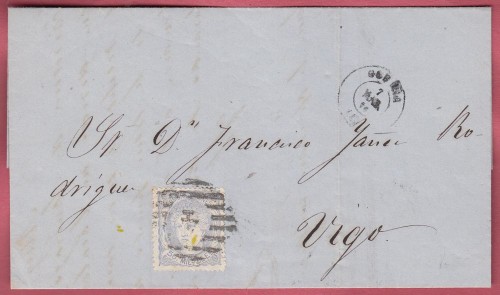 7
MAR
Sr. Dn. Francisco Yañez Ro-
driguez
Vigo.